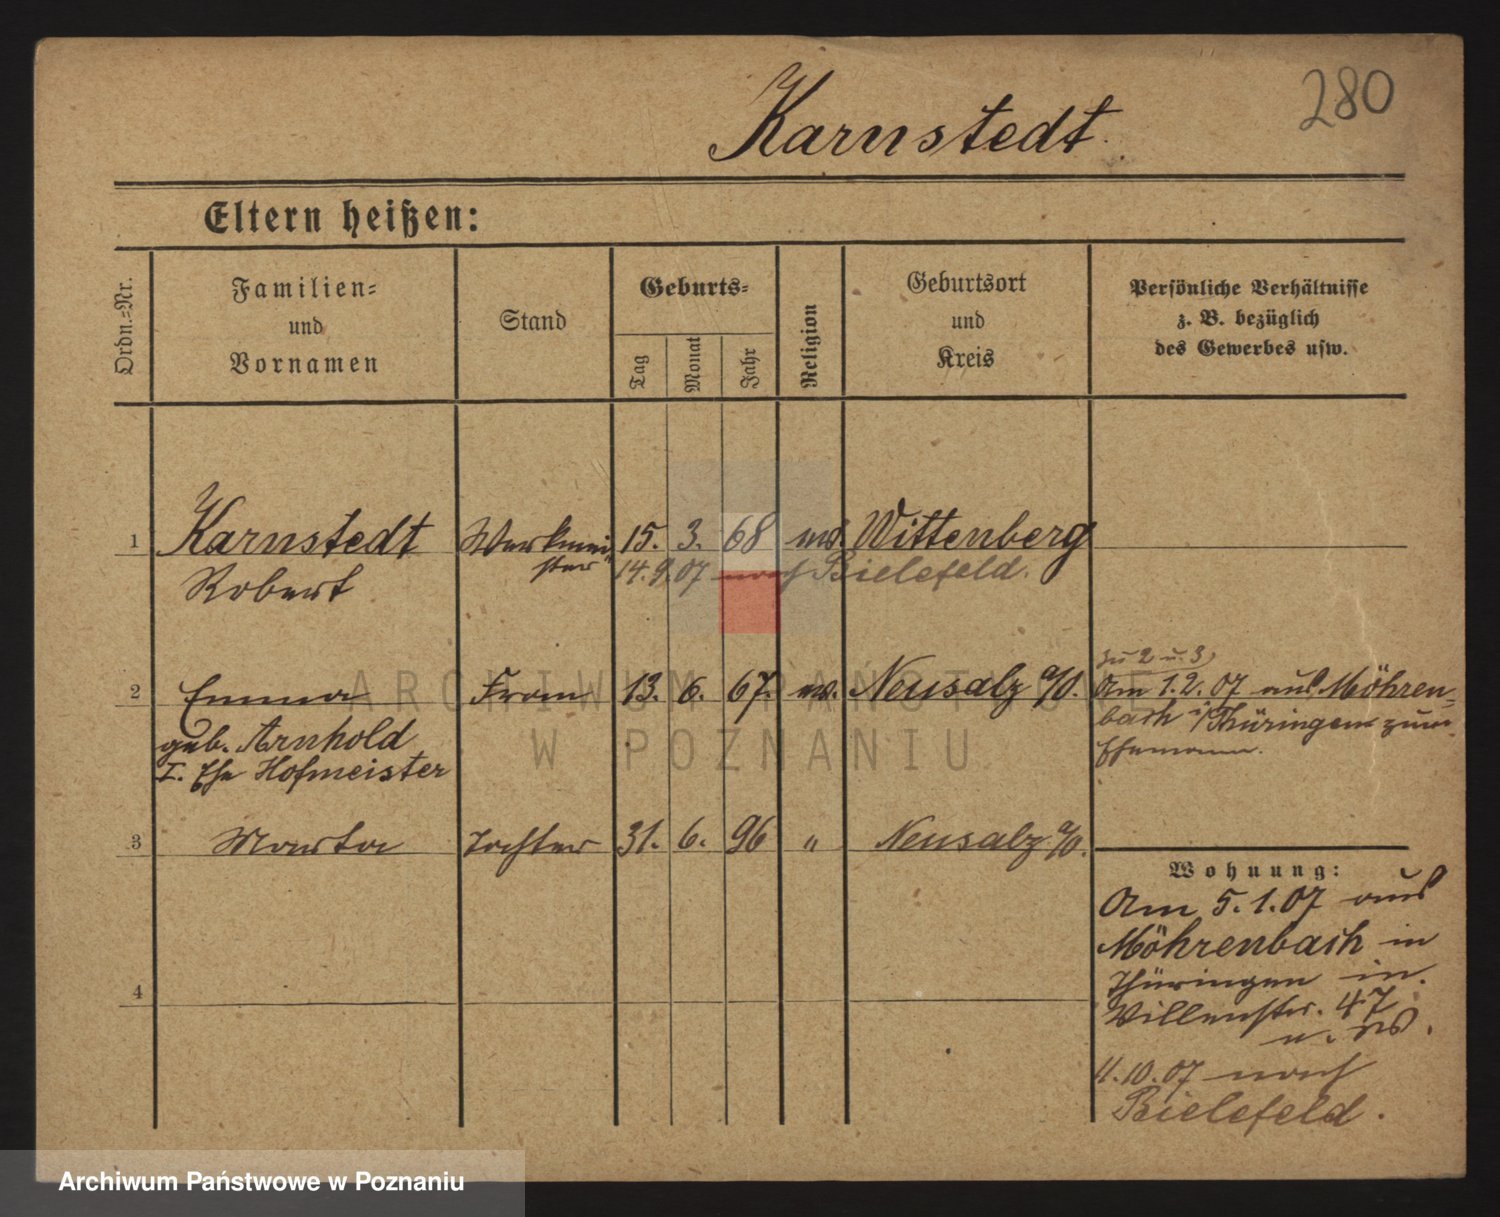 280
Karnstedt.
Eltern heißen:
Ordn.-Nr.
Familien-
und
Vornamen
Stand
Geburts-
Tag
Monat
Jahr
Religion
Geburtsort
und
Kreis
Persönliche Verhältnisse
z. B. bezüglich
des Gewerbes usw.
1 Karnstedt Werkmei- 15. 3. 68 ev. Wittenberg
ster 14.9.07 nach Bielefeld.
Robert
zu 2 u. 3)
2 Emma Frau 13. 6. 67. ev. Neusalz a/O. Am 1.2.07 aus Möhren-
bach i/Thüringen zum
geb. Arnhold
Ehemann.
I. Ehe Hofmeister
3 Marta Tochter 31. 6. 96 " Neusalz a/O.
Wohnung:
Am 5.1.07 aus
Möhrenbach in
Thüringen in
4
47
11.10.07 nach
Bielefeld.
ARCHIWUM PAŃSTWOWE
W POZNANIU
Archiwum Państwowe w Poznaniu